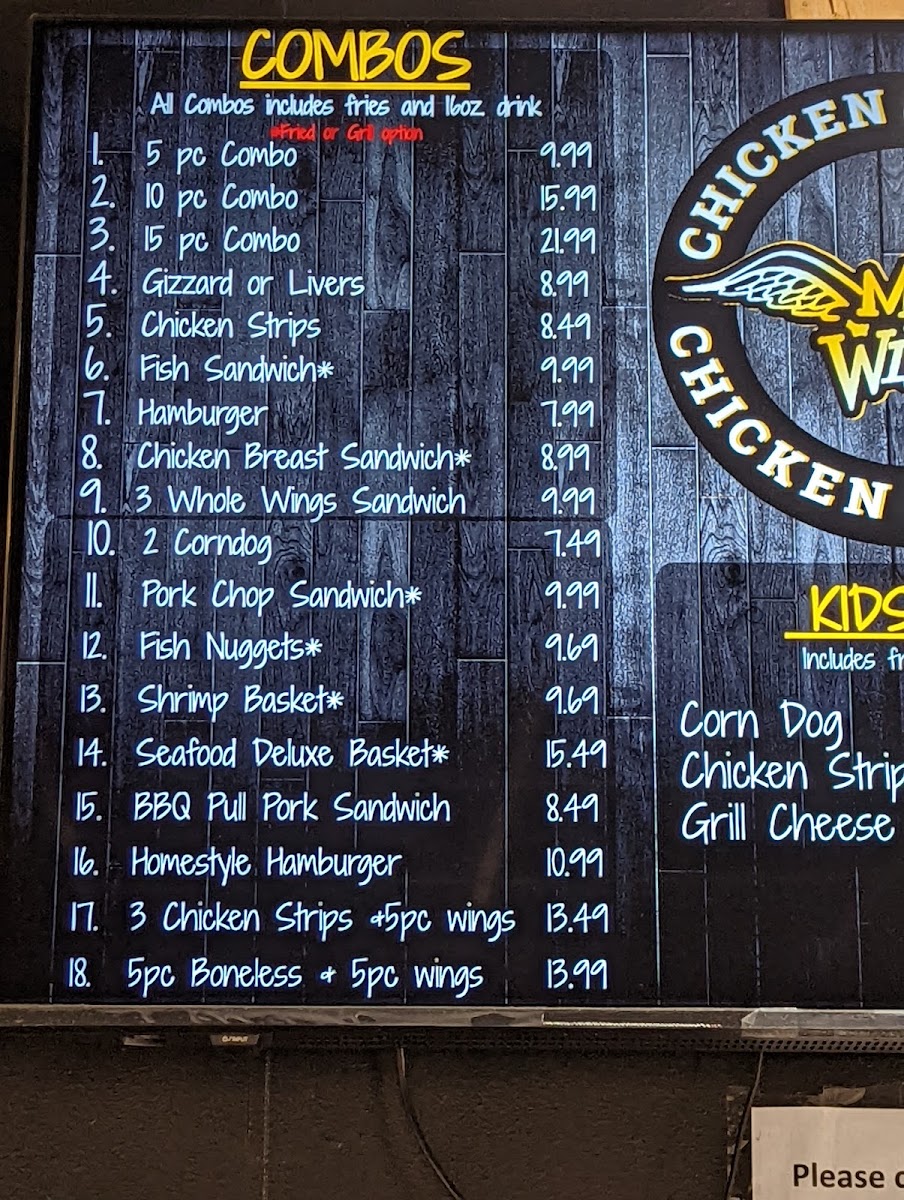 COMBOS
All Combos includes fries and 16oz drink
*Fried or Grill option
1. 5 pc Combo 9.99
2. 10 pc Combo 15.99
3. 15 pc Combo 21.99
4. Gizzard or Livers 8.99
5. Chicken Strips 8.49
6. Fish Sandwich* 9.99
7. Hamburger 7.99
8. Chicken Breast Sandwich* 8.99
9. 3 Whole Wings Sandwich 9.99
10. 2 Corndog 7.49
11. Pork Chop Sandwich* 9.99
12. Fish Nuggets* 9.69
13. Shrimp Basket* 9.69
14. Seafood Deluxe Basket* 15.49
15. BBQ Pull Pork Sandwich 8.49
16. Homestyle Hamburger 10.99
17. 3 Chicken Strips &5pc wings 13.49
18. 5pc Boneless & 5pc wings 13.99
CHICKEN
CHICKEN
KIDS
Includes
Corn Dog
Chicken Strip
Grill Cheese
Please